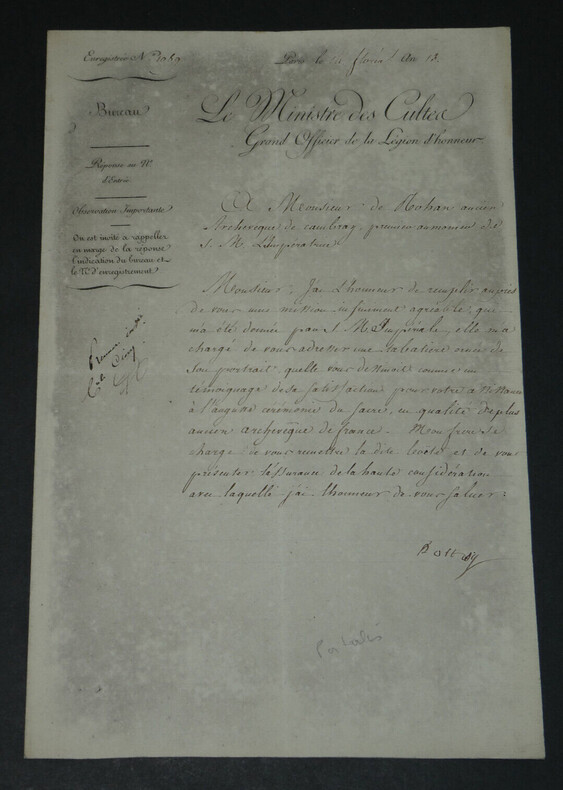 Enregistré N.°
Paris le floréal An 13.
Bureau
Le Ministre des Cultes
Grand Officier de la Légion d'honneur
Réponse au N.°
d'Entrée
Observation Importante
On est invité à rappeller
en marge de la réponse
l'indication du bureau et
le N.° d'enregistrement.
A Monsieur de Rohan ancien
Archevêque de Cambray, premier aumonier de
S. M. L'Impératrice
Monsieur, J'ai L'honneur de remplir auprès
de vous une mission infiniment agréable, que
m'a été donnée par S. M. Impériale, elle m'a
chargé de vous adresser une tabatière ornée de
son portrait quelle vous destinait comme un
temoignage de sa satisfaction pour votre assistance
à l'auguste cérémonie du sacre, en qualité de plus
ancien archevêque de france. Mon frere se
charge de vous remettre la dite boëte et de vous
présenter l'assurance de la haute considération
avec laquelle j'ai l'honneur de vous saluer:
Portalis